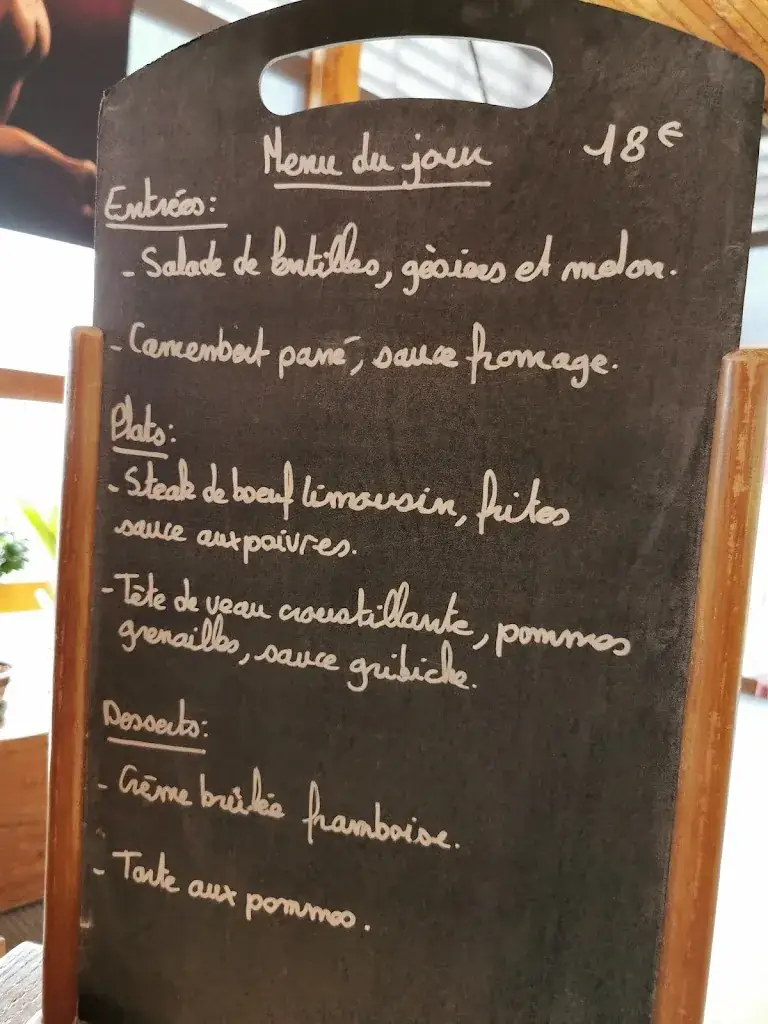 Menu du jour 18€
Entrées:
- Salade de lentilles, gésiers et melon.
- Camembert pané, sauce fromage.
Plats:
- Steak de boeuf limousin, frites
sauce aux poivres.
- Tête de veau croustillante, pommes
grenailles, sauce gribiche.
Desserts:
- Crème brûlée framboise.
- Tarte aux pommes.